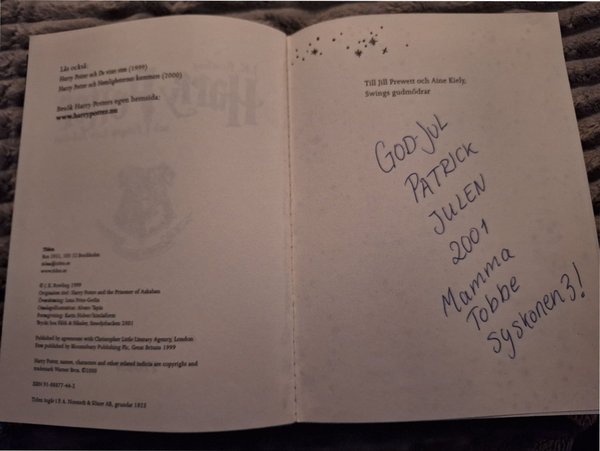 Läs också:
Harry Potter och De vises sten (1999)
Harry Potter och Hemligheternas kammare (2000)
Besök Harry Potters egen hemsida:
www.harrypotter.nu
Tiden
Box 2052, 103 12 Stockholm
www.tiden.se
© J. K. Rowling 1999
Originalets titel: Harry Potter and the Prisoner of Azkaban
Översättning: Lena Fries-Gedin
Omslagsillustration: Alvaro Tapia
Published by agreement with Christopher Little Literary Agency, London
First published by Bloomsbury Publishing Plc, Great Britain 1999
Harry Potter, names, characters and other related indicia are copyright and
trademark Warner Bros. ©2000
Tiden ingår i P.A. Norstedt & Söner AB, grundat 1823
Till Jill Prewett och Aine Kiely,
Swings gudmödrar
GOD-JUL
PATRICK
JULEN
2001
Mamma
Tobbe
syskonen 3!